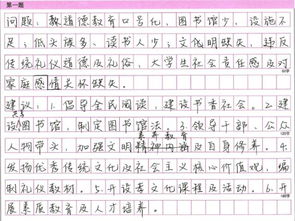 第一题
问题：教道德教育口号化，图书馆少，设施不
足；低头族多、读书人少；文化明缺失，违反
传统道德及礼俗，大学生社会责任感及对
家庭感情关怀缺失。
建议：1.倡导全民阅读，建设书香社会。2.建
设图书馆，制定图书馆法。3.领导干部、公众
素养教育
人物带头，加强文明精神内涵及自身修养。4.
发扬优秀传统文化及社会主义核心价值观，编
制礼仪教材。5.开设孝文化课程及活动。6.开
展素质教育及人才培养。